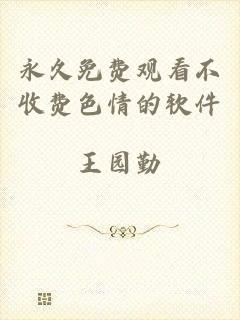 永久免费观看不
收费色情的软件
王园勤